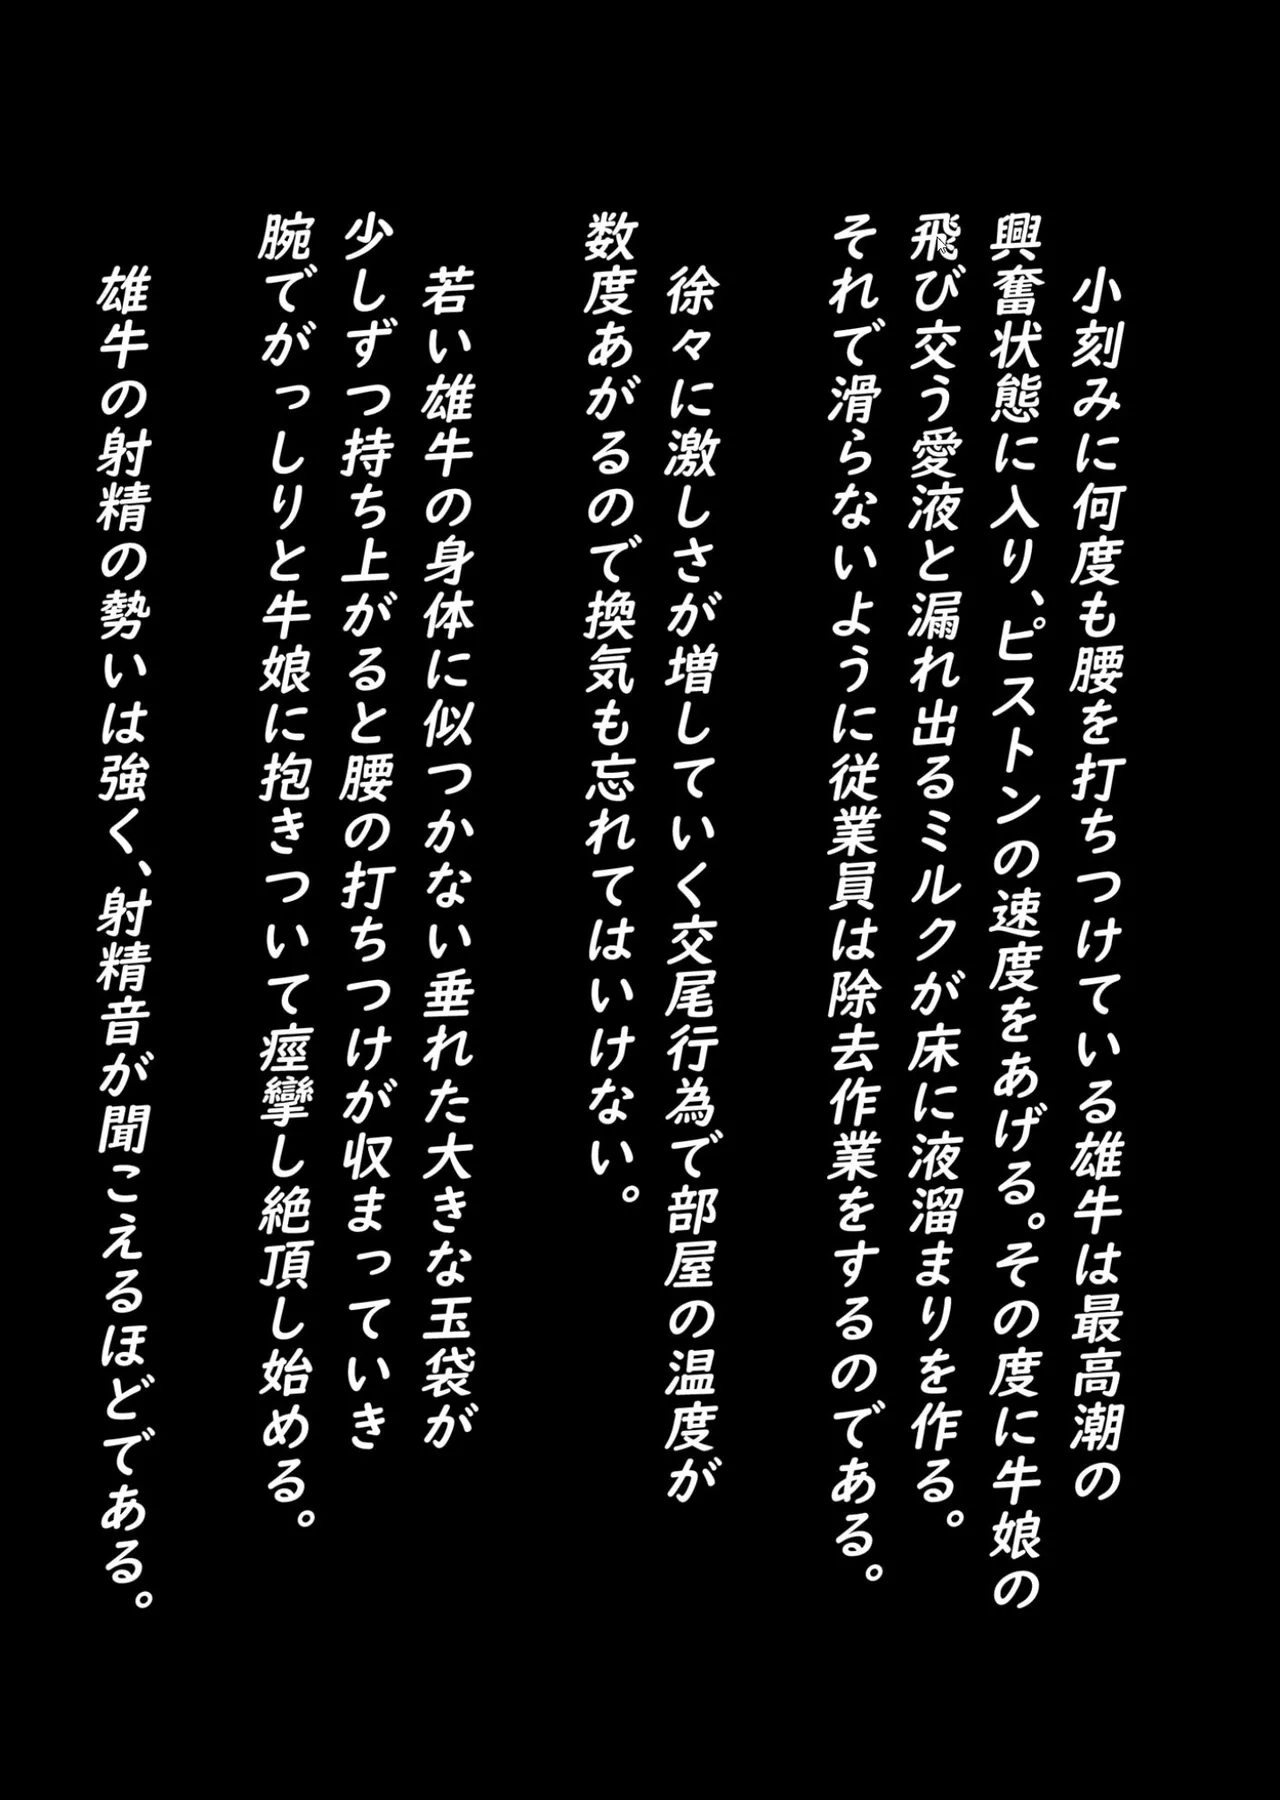 小刻みに何度も腰を打ちつけている雄牛は最高潮の
興奮状態に入り、ピストンの速度をあげる。その度に牛娘の
飛び交う愛液と漏れ出るミルクが床に液溜まりを作る。
それで滑らないように従業員は除去作業をするのである。
徐々に激しさが増していく交尾行為で部屋の温度が
数度あがるので換気も忘れてはいけない。
若い雄牛の身体に似つかない垂れた大きな玉袋が
少しずつ持ち上がると腰の打ちつけが収まっていき
腕でがっしりと牛娘に抱きついて痙攣し絶頂し始める。
雄牛の射精の勢いは強く、射精音が聞こえるほどである。